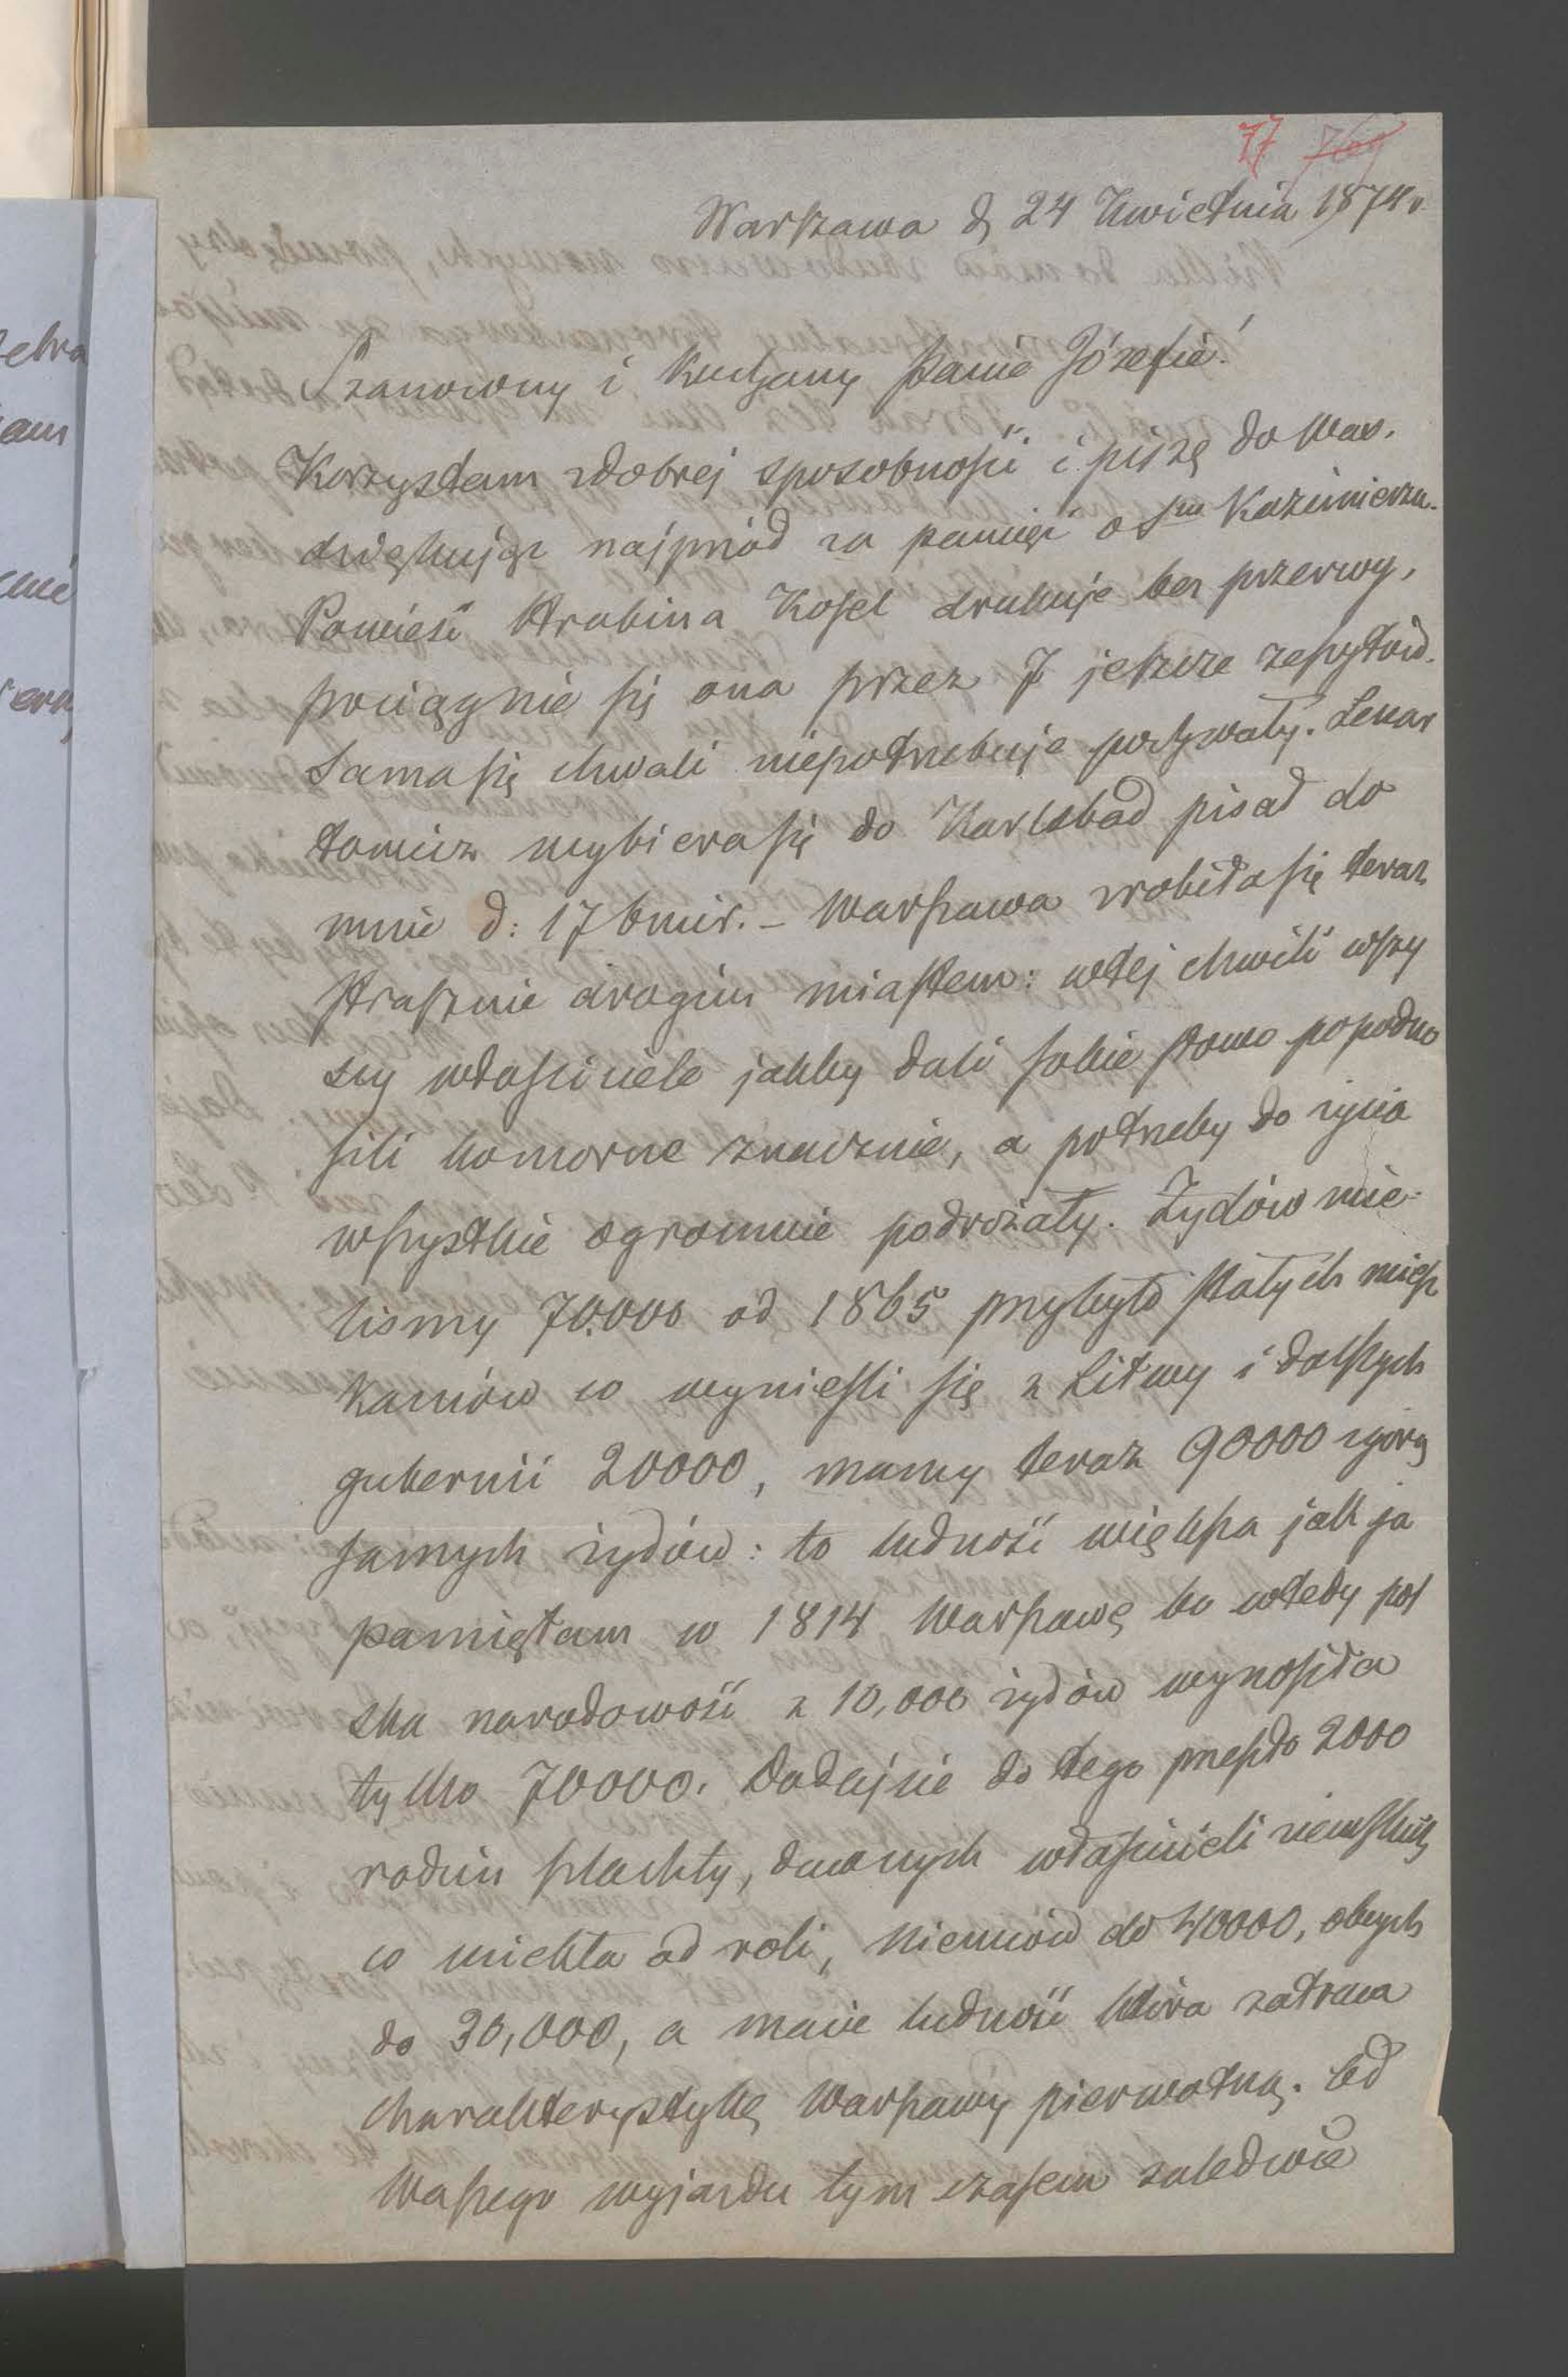 77 769
Warszawa d, 24 Kwietnia 1874 r.
Szanowny i Kochany Panie Józefie!
Korzystam zdobrej sposobności i piszę do Was.
dziękując najprzód za pamięć o Sym Kazimierzu.
Powieść Hrabina Kosel drukuje bez przerwy,
pociągnie się ona przez 7 jeszcze zeszytów.
Sama się chwali niepotrzebuje pochwały. Lenar
towicz wybiera się do Karlsbad pisał do
mnie d: 17 bmir. – Warszawa zrobiła się teraz
strasznie drogim miastem: wtej chwili wszy
scy właściciele jakby dali sobie słowo popodno
sili komorne znacznie, a potrzeby do życia
wszystkie ogromnie podrożały. Żydów mie-
lismy 70.000 od 1865 przybyło stałych miesz
kańców co wynieśli się z Litwy i dalszych
gubernii 20000, mamy teraz 90000 zgórą
samych żydów: to ludność większa jak ja
pamiętam w 1814 Warszawę bo wtedy pol
ska narodowość z 10,000 żydów wynosiła
tylko 70000. Dodajcie do tego przeszło 2000
rodzin szlachty, dawnych właścicieli ziemskich
co uciekła od roli, Niemców do 40000, obcych
do 30,000, a macie ludność która zatraca
charakterystykę Warszawy pierwotną. Od
Waszego wyjazdu tym czasem zaledwie